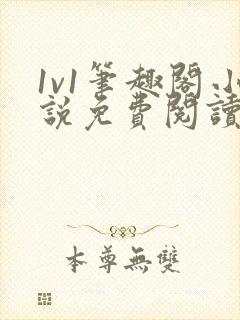 1v1筆趣閣.小
說免費閱讀
本尊無雙